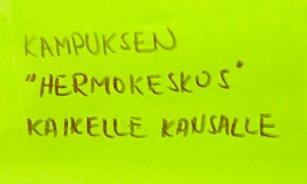 KAMPUKSEN
"HERMOKESKUS"
KAIKELLE KANSALLE